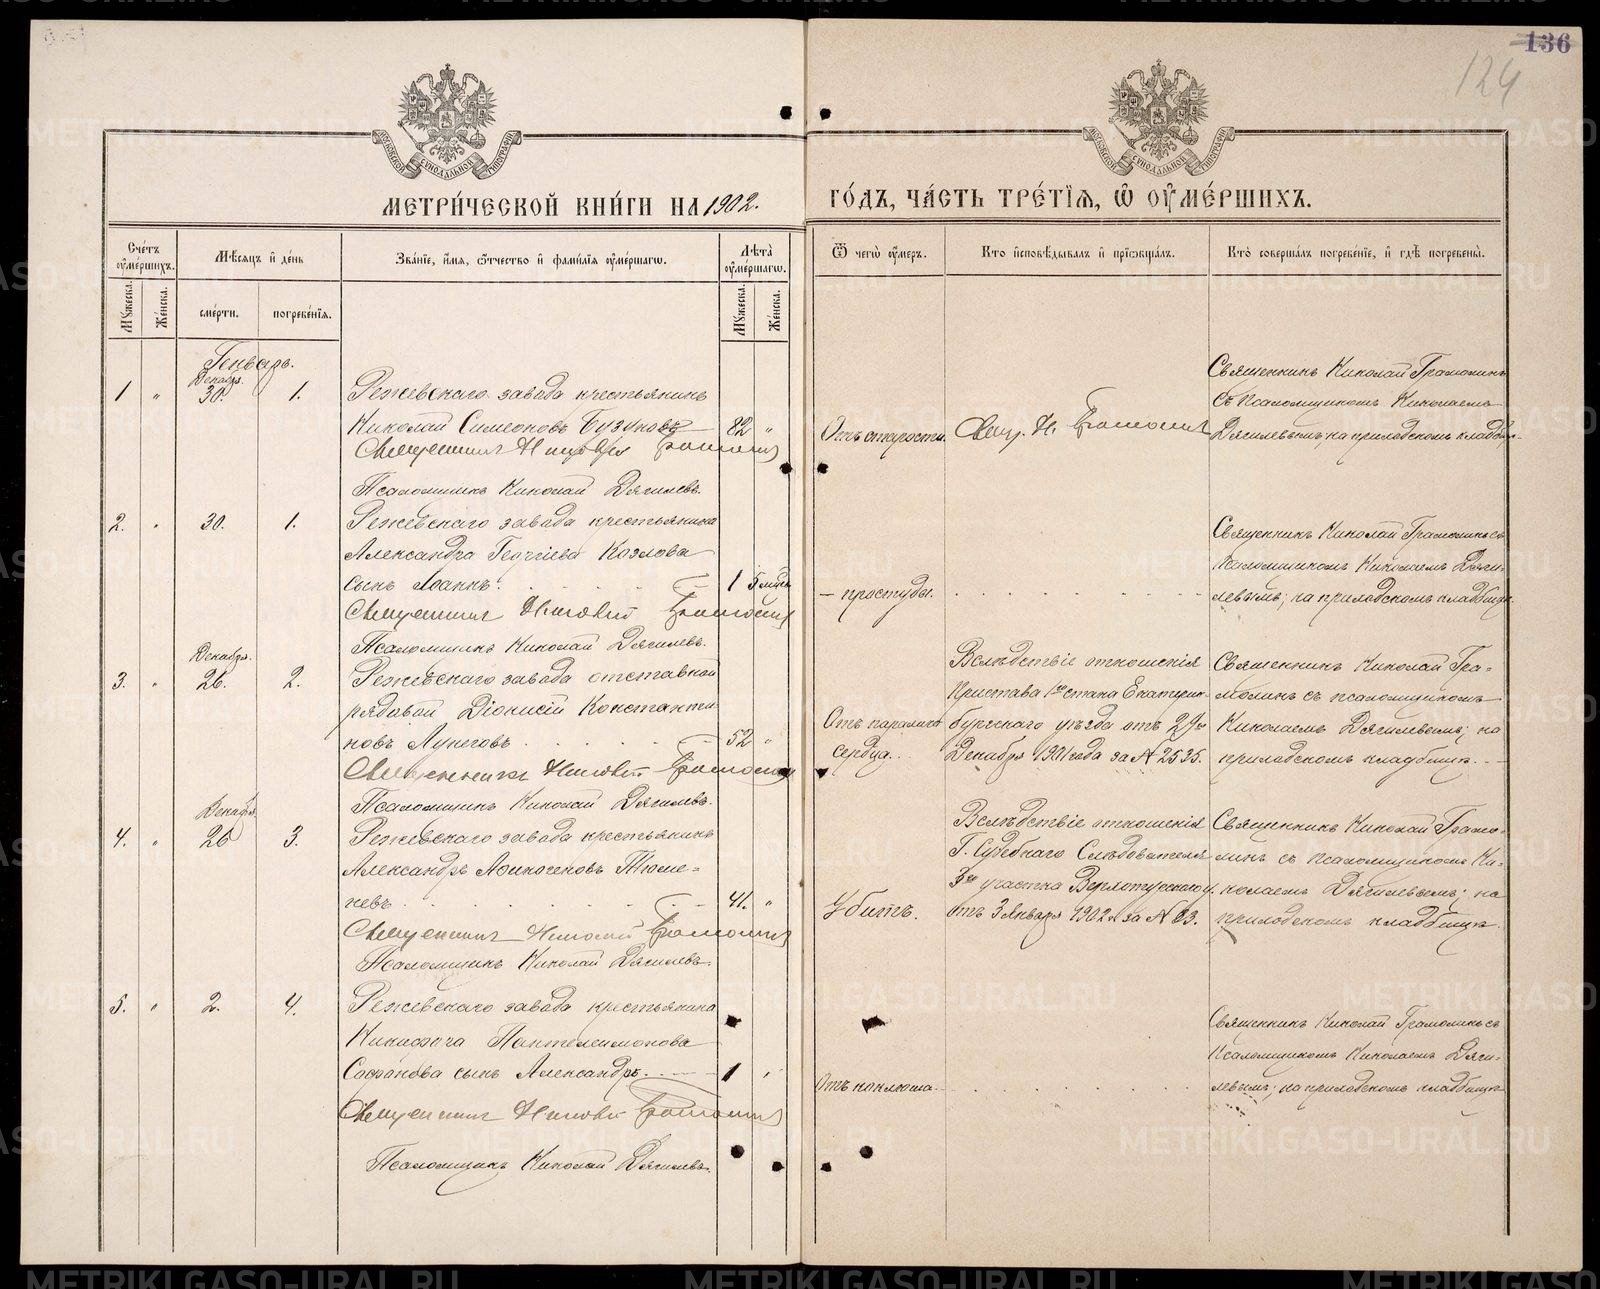 136
124
МОСКОВСКОЙ СѴНОДАЛЬНОЙ ТИПОГРАФІИ
МОСКОВСКОЙ СѴНОДАЛЬНОЙ ТИПОГРАФІИ
МЕТРИ́ЧЕСКОЙ КНИ́ГИ НА 1902. ГО́ДЪ, ЧА́СТЬ ТРЕ́ТІѦ, Ѡ ОУМЕ́РШИХЪ.
Сче́тъ оуме́ршихъ.
Мѣсѧцъ и де́нь
Зва́нїе, и́мѧ, ѻтчество и фами́лїѧ оуме́ршагѡ.
Лѣта̀ оуме́ршагѡ.
Ѿ чегѡ̀ оу́меръ.
Кто̀ и҆сповѣ́дывалъ и҆ прїѡбща́лъ.
Кто̀ соверша́лъ погребе́нїе, и҆ гдѣ̀ погребены̀.
Мꙋ́жеска. Же́нска. сме́рти. погребе́нїѧ. Мꙋ́жеска. Же́нска.
Генварь.
Декабр.
1 " 30. 1. Режевскаго завода крестьянинъ
Николай Симеоновъ Бузуновъ 82 "
Священникъ Николай Грамолинъ
Псаломщикъ Николай Дягилевъ.
Отъ старости.
Свящ. Н. Грамолинъ
Священникъ Николай Грамолинъ
съ псаломщикомъ Николаемъ
Дягилевымъ, на приходскомъ кладбищ.
2. " 30. 1. Режевскаго завода крестьянина
Александра Георгіева Козлова
сынъ Іоаннъ. 1 5 мѣс.
Священникъ Николай Грамолинъ
Псаломщикъ Николай Дягилевъ.
— простуды.
Священникъ Николай Грамолинъ съ
псаломщикомъ Николаемъ Дяги-
левымъ; на приходскомъ кладбищѣ.
Декабря.
3. " 26. 2. Режевскаго завода отставной
рядовой Діонисій Константи-
новъ Лунеговъ 52 "
Священникъ Николай Грамолинъ
Псаломщикъ Николай Дягилевъ.
Отъ паралича
сердца.
Вслѣдствіе отношенія
Пристава 1го стана Екатерин-
бургскаго уѣзда отъ 29го
Декабря 1901 года за № 2535.
Священникъ Николай Гра-
молинъ съ псаломщикомъ
Николаемъ Дягилевымъ; на
приходскомъ кладбищѣ.
Декабря.
4. " 26 3. Режевскаго завода крестьянинъ
Александръ Аѳиногеновъ Тюме-
невъ 41. "
Священникъ Николай Грамолинъ
Псаломщикъ Николай Дягилевъ.
Убитъ.
Вслѣдствіе отношенія
Г. Судебнаго Слѣдователя
3го участка Верхотурскаго у.
отъ 3 Января 1902 г. за № 13.
Священникъ Николай Грамо-
линъ съ псаломщикомъ Ни-
колаемъ Дягилевымъ; на
приходскомъ кладбищѣ.
5. " 2. 4. Режевскаго завода крестьянина
Никифора Пантелеимонова
Сафонова сынъ Александръ. 1 "
Священникъ Николай Грамолинъ
Псаломщикъ Николай Дягилевъ.
Отъ коклюша
Священникъ Николай Грамолинъ съ
псаломщикомъ Николаемъ Дяги-
левымъ; на приходскомъ кладбищѣ
METRIKI.GASO-URAL.RU